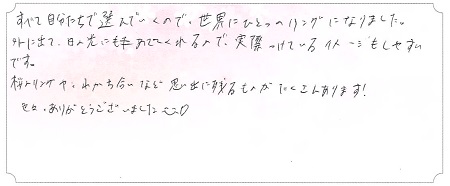 すべて自分たちで選んでいくので、世界にひとつのリングになりました。
外に出て、日の光にもあててくれるので、実際つけているイメージもしやすい
です。
桜リングや、わかち合いなど思い出に残るものがたくさんあります!
色々、ありがとうございました